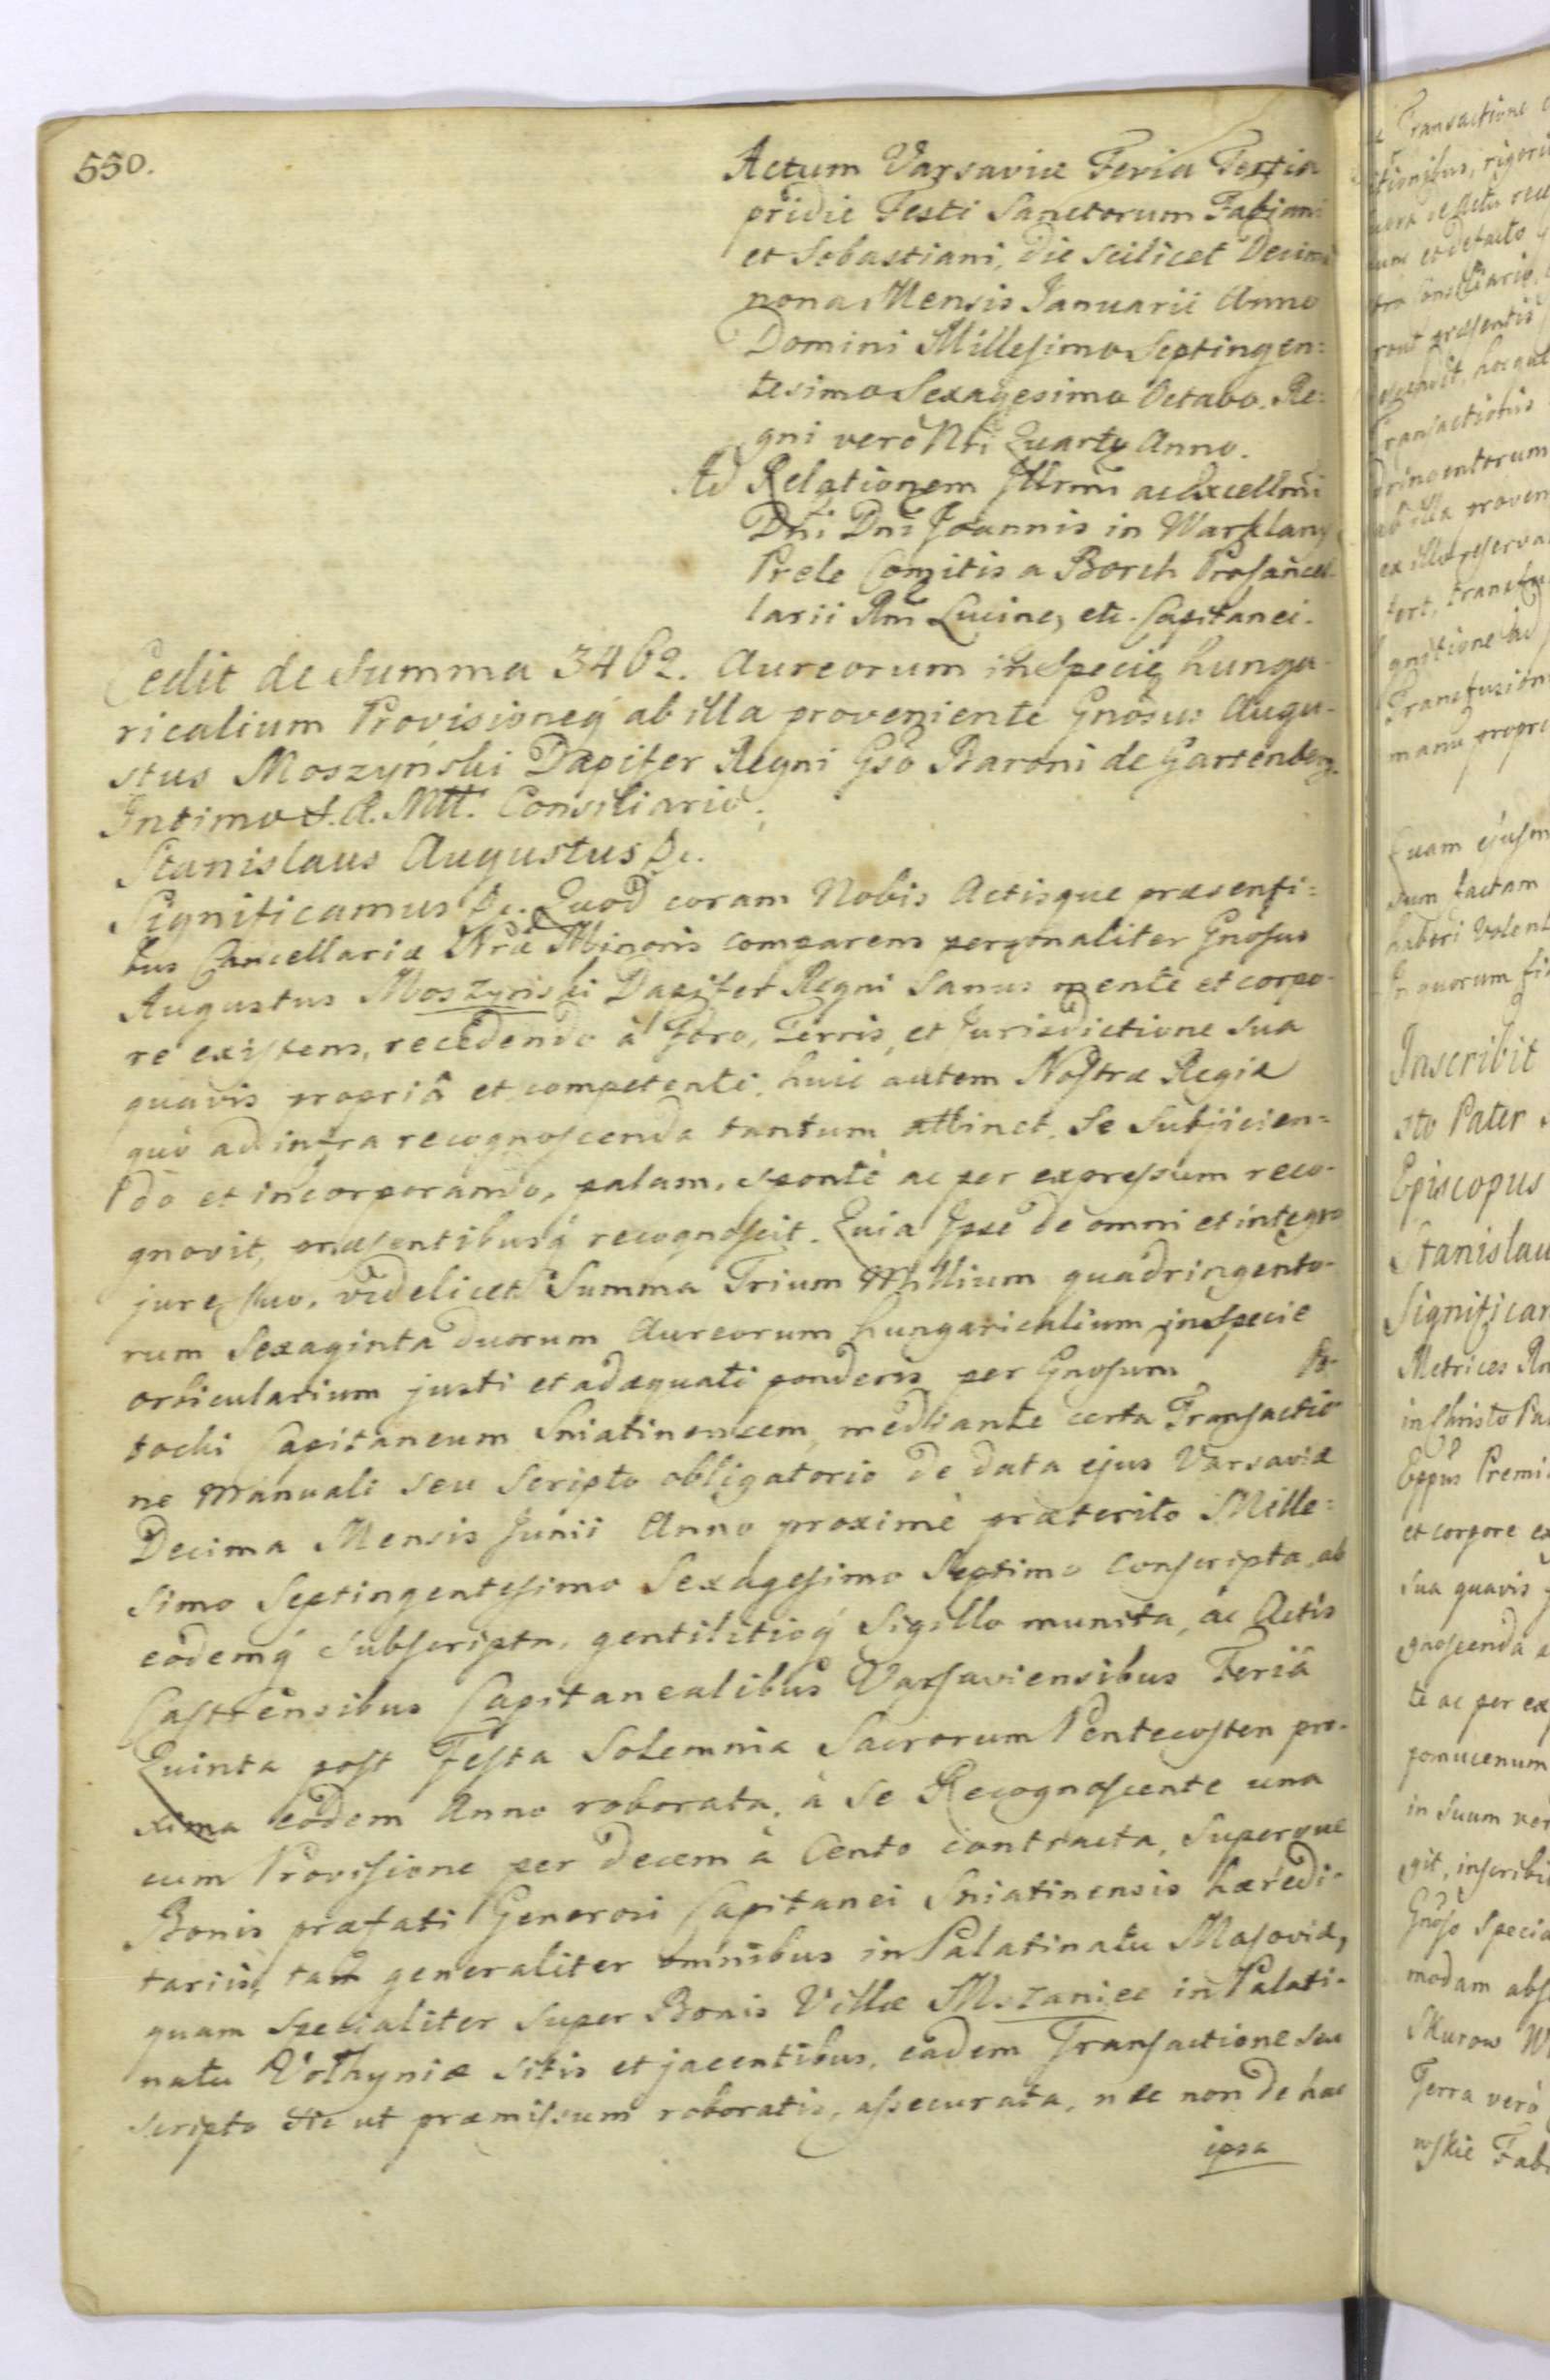 550.
Actum Varsaviæ Feria Tertia
pridie Festi Sanctorum Fabiani
et Sebastiani, die scilicet Decima
nona Mensis Januarii Anno
Domini Millesimo Septingen=
tesimo Sexagesimo Octavo. Re=
gni verò Nri Quarto Anno.
Ad Relationem Illrmi ac Excellmi
Dni Dni Joannis in Warklany
Prele Comitis a Borch Procancel-
larii Rni Lucinen etc. Capitanei.
Cedit de Summa 3462. Aureorum in Specie hunga-
ricalium Provisioneq ab illa proveniente Gnosus Augu-
stus Moszyński Dapifer Regni Gso Baroni de Gartenberg.
Intimo S.R.Mtt. Consiliario.
Stanislaus Augustus &c.
Significamus &c. Quod coram Nobis Actisque præsenti=
bus Cancellariæ Nræ Minoris comparens personaliter Gnosus
Augustus Moszyński Dapifer Regni sanus mente et corpo-
re existens, recedendo à Foro, Terris, et Jurisdictione sua
quavis propriâ et competenti, huic autem Nostræ Regiæ
quò ad infra recognoscenda tantum attinet, se subjicien=
do et incorporando, palam, sponte ac per expressum reco-
gnovit, præsentibusq recognoscit. Quia Ipse de omni et integro
jure suo, videlicet Summa Trium Millium quadringento-
rum Sexaginta duorum Aureorum hungaricalium in Specie
orbicularium justi et adæquati ponderis per Gnosum Po-
tocki Capitaneum Sniatinensem, mediante certa Transactio
ne Manuali seu Scripto obligatorio de data ejus Varsaviæ
Decima Mensis Junii Anno proximè præterito Mille=
simo Septingentesimo Sexagesimo Septimo conscripta, ab
eodemq subscripta, gentilitioq Sigillo munita, ac Actis
Castrensibus Capitanealibus Varsaviensibus Feriâ
Quinta post Festa Solemnia Sacrorum Pentecosten pro-
xima eodem Anno roborata, à se Recognoscente una
cum Provisione per decem à Cento contracta, superque
Bonis præfati Generosi Capitanei Sniatinensis hæredi-
tariis, tam generaliter omnibus in Palatinatu Masoviæ,
quam specialiter super Bonis Villæ Mszaniec in Palati-
natu Volhyniæ sitis et jacentibus, eâdem Transactione seu
scripto sic ut præmissum roboratis, assecurata, nec non de hac
ipsa
Transactione
rigori
et defacto
Consiliario
præsentis
Transactionis
ab illa proven
Transfusion
manu propri
Quam ejusm
sum factam
haberi volent
In quorum fi
Inscribit
sto Pater
Episcopus
Stanislau
Significam
Metrices Rn
in Christo Pa
Eppus Premi
et corpore ex
sua quavis
gnoscenda a
te ac per ex
pomucenum
in suum ver
git, inscribi
Gnoso Specia
modam abs
Skurow W
Terra verò
wskie Fab